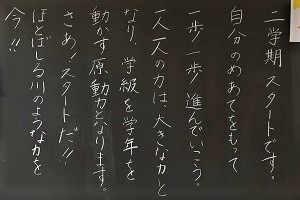 二学期スタートです。
自分のめあてをもって
一歩一歩進んでいこう。
一人一人の力は、大きな力と
なり、学級を学年を
動かす原動力となります。
さあ!スタートだ!!
ほとばしる川のような力を
今!!